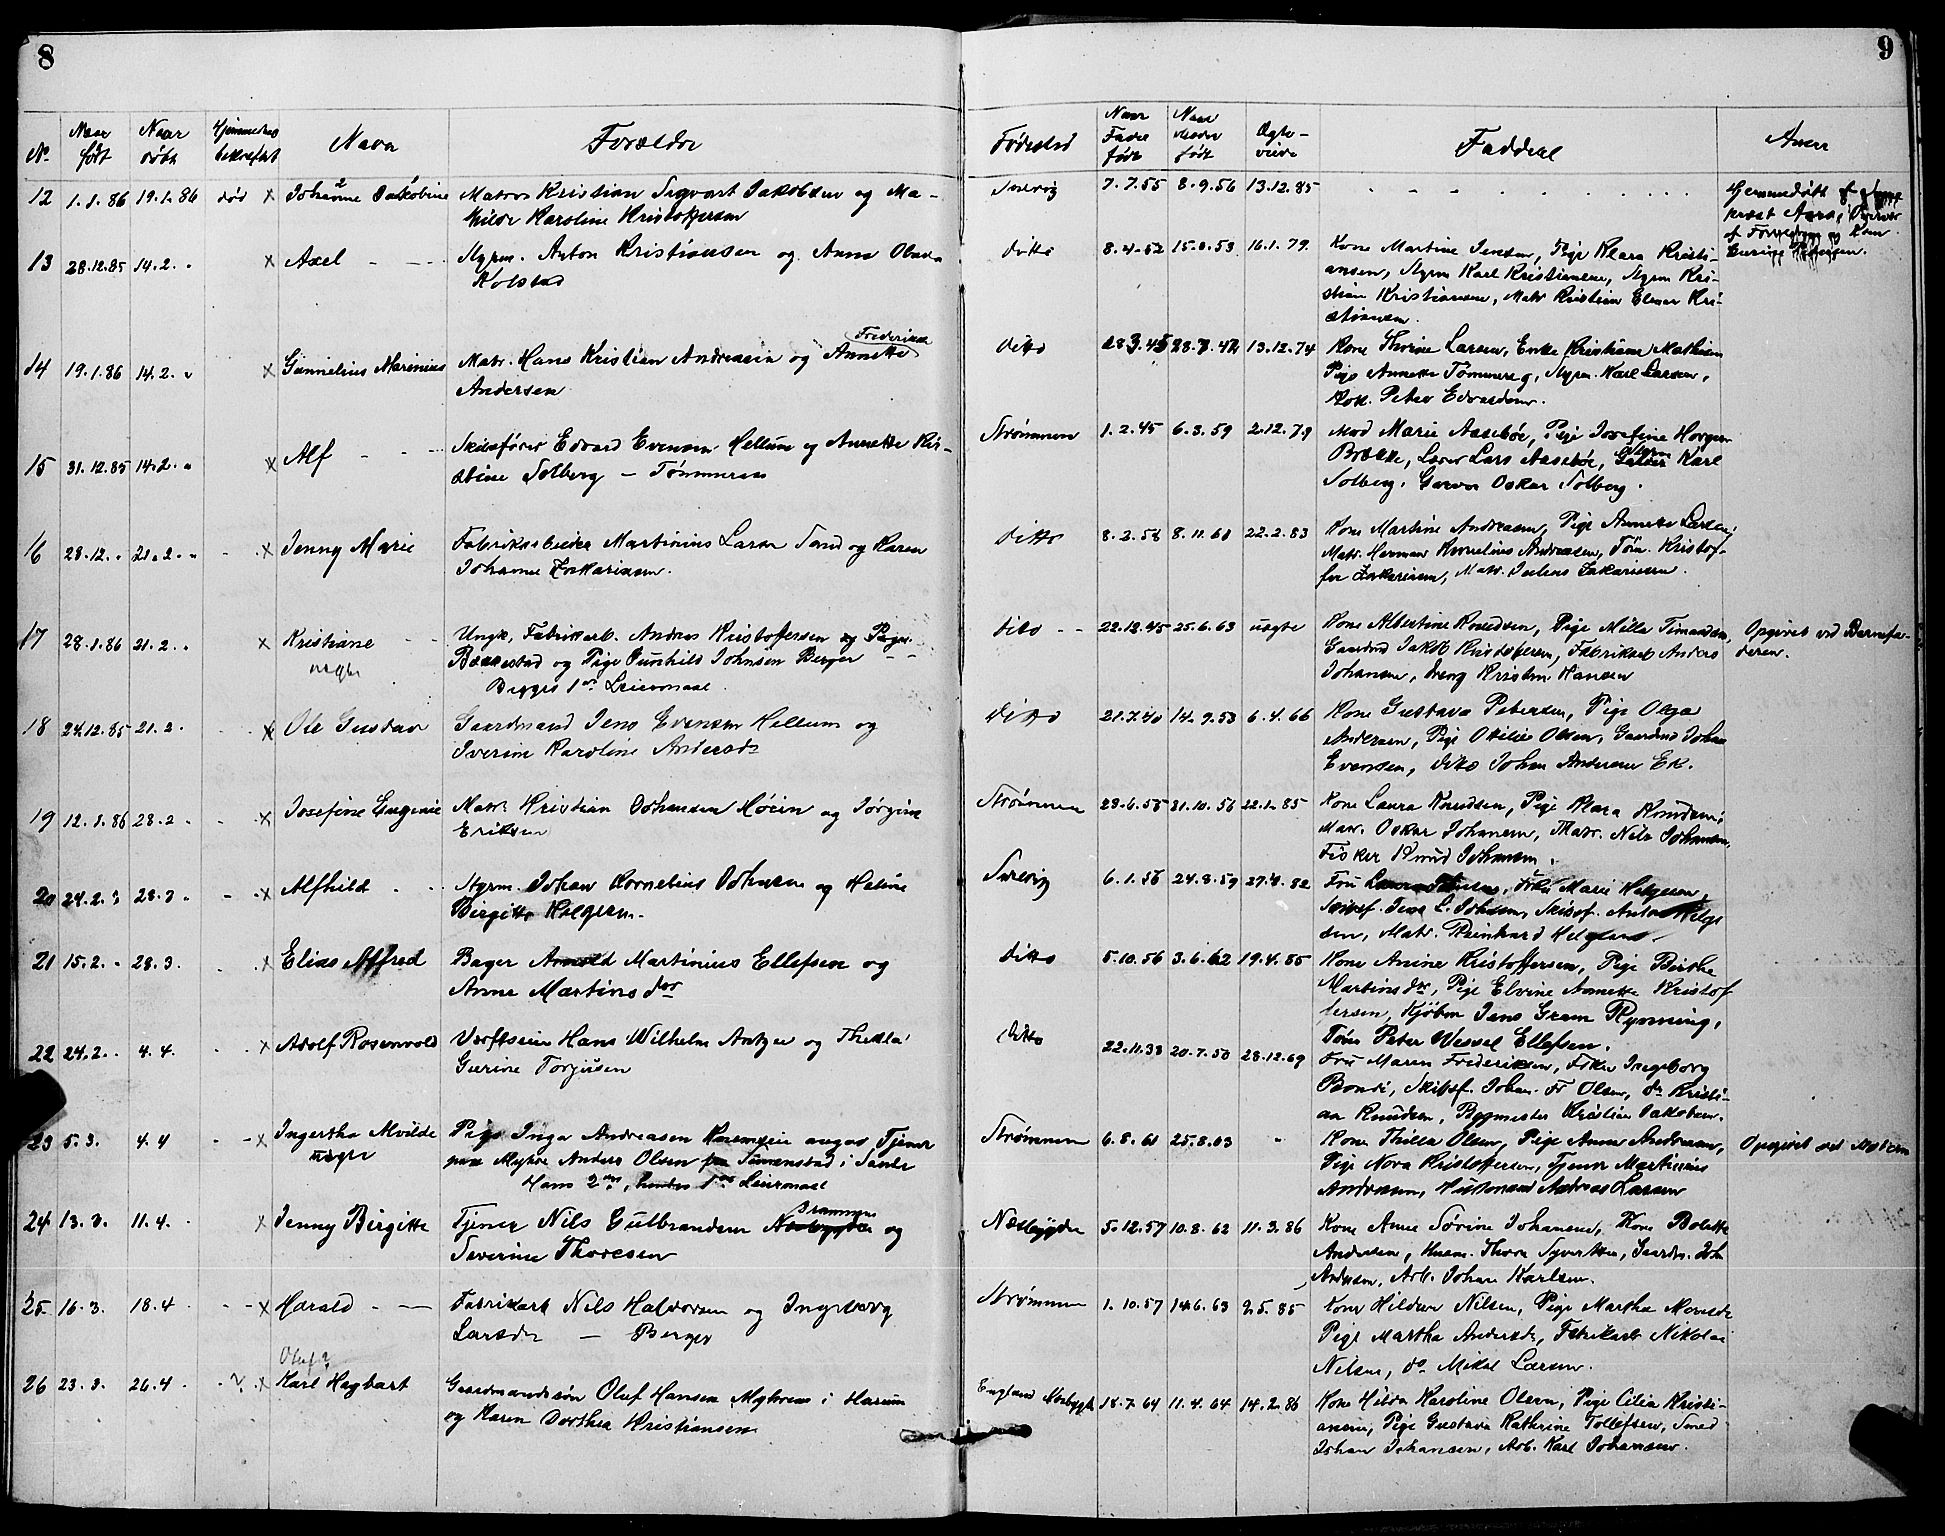 8
9
No
Naar født
Naar døbt
Hjemmedaab bekræftet
Navn
Forældre
Fødested
Naar Fader født
Naar Moder født
Ægteviede
Faddere
Anm
12 1.1.86 19.1.86 død x Johanne Jakobine
Matros Kristian Sigvart Jakobsen og Ma-
thilde Karoline Kristoffersen
Snevig 7.7.55 8.9.56 13.12.85
Hjemmedøbt
13 28.12.85 14.2. x Axel
Styrm. Anton Kristiansen og Anna
Kolstad
ditto 8.4.52 16.1.79
Kone Martine Jensen, Pige Klara Kristi-
ansen, Styrm Karl Kristiansen, Styrm Kri-
stian Kristiansen, Matr Kristian Elmer Kri-
stiansen.
14 19.1.86 14.2. x Gunnelius Marinius
Frederikke
Matr. Hans Kristian Andreasen og Annette
Andersen
ditto 13.12.74
Kone Thorine Larsen, Enke Kristiane Mathisen
Pige Annette Tømmeraas, Styrm. Karl Larsen,
Peter Edvardsen.
15 31.12.85 14.2. x Alf
Skibsfører Edvard Evensen Hellum og Annette Kir-
stine Solberg – Tømmeraas
Strømmen 1.2.45 6.3.59 2.12.79
Mad Marie Aasebøe, Pige Josefine Horgen
Brække, Lærer Lars Aasebøe, Styrm Karl
Solberg, Garver Oskar Solberg.
16 28.12. 21.2. x Jenny Marie
Fabrikarbeider Martinius Larsen Sand og Karen
Johanne Zakariasen.
ditto 8.2.58 8.11.60 22.2.83
Kone Martine Andreasen, Pige Annette Larsen,
Matr. Herman Kornelius Andreasen, Tøm. Kristof-
fer Zakariasen, Matr. Julius Zakariasen.
17 28.1.86 21.2. x Kristiane
uægte
Ungk. Fabrikarb. Andreas Kristoffersen og Pige
Bakkestad og Pige Gunhild Johnsen Berger
Begges 1ste Leiermaal.
ditto 22.12.45 25.6.63 uægte
Kone Albertine Knudsen, Pige Milla
Gaardmd Jakob Kristoffersen, Fabrikarb Anders
Johansen, Dreng Kristen Hansen
Opgivet ved Barnefa-
deren.
18 24.12.85 21.2. x Ole Gustav
Gaardmand Jens Evensen Hellum og
Iverine Karoline Andersdr
ditto 21.7.40 14.9.53 6.4.66
Kone Gustava Petersen, Pige Olga
Andersen, Pige Otilie Olsen, Gaardmd Johan
Evensen, ditto Johan Andersen Ek.
19 12.1.86 28.2 x Josefine Eugenie
Matr. Kristian Johansen Møien og Jørgine
Eriksen
Strømmen 29.6.55 31.10.56 22.1.85
Kone Laura Knudsen, Pige Klara Knudsen,
Matr. Oskar Johansen, Matr. Nils Johansen,
Fisker Knud Johansen.
20 24.2. 28.3 x Alfhild
Styrm. Johan Kornelius Johnsen og Heline
Birgitte Helgesen.
Snevig 6.1.56 24.8.59 27.4.82
Fru Marie Helgesen,
Skibsf. Jens L. Johnsen, Skibsf. Anton Helge
sen, Matr. Reinhard Helgesen.
21 15.2. 28.3. x Elias Alfred
Bager Arnold Martinius Ellefsen og
Anne Martinsdtr
ditto 5.10.56 3.6.62 19.4.85
Kone Anine Kristoffersen, Pige Birthe
Martinsdtr, Pige Elvine Annette Kristof
fersen, Kjøbm Jens Gram Rynning,
Tøm Peter Wessel Ellefsen.
22 24.2. 4.4. x Adolf Rosenvold
Værftseier Hans Wilhelm Antzen og Thekla
Gurine Torjusen
ditto 22.11.38 20.7.50 28.12.69
Fru Maren Frederiksen, Frøken Ingeborg
Bondi, Skibsf. Johan Fr Olsen, do Kristi-
an Knudsen, Bygmester Kristian Jakobsen.
23 5.3. 4.4 x Ingertha Alvilde
uægte
Pige Inga Andreasen angav Tjener
Anders Olsen Simenstad i Sande
Hans 2den, hendes 1ste Leiermaal
Strømmen 6.8.61 25.8.63
Kone Thilla Olsen, Pige Anna Andreasen,
Pige Nora Kristoffersen, Tjener Martinius
Andreasen, Husmand Andreas Larsen
Opgivet ved Moderen
24 13.3. 11.4. x Jenny Birgitte
Drammen
Tjener Nils Gulbrandsen Næsbygden og
Severine Thoresen
Næsbygden 5.12.57 10.8.62 11.3.86
Kone Anne Sørine Johansen, Kone Bolette
Andersen, Husm. Thore Syvertsen, Gaardm. Joh
Andersen, Arb. Johan Karlsen.
25 16.3. 18.4 x Harald
Fabrikarb Nils Halvorsen og Ingeborg
Larsdr – Berger
Strømmen 1.10.57 14.6.63 25.85
Kone Hildur Nilsen, Pige Martha
Pige Martha Andersdr, Fabrikarb Nikolai
Nilsen, do Mikal Larsen.
26 23.3. 26.4 ? x Oluf?
Karl Hagbart
Gaardmandssøn Oluf Hansen Myhren i Hurum
og Karen Dorthea Kristiansen
England Næsbygd 18.7.64 11.4.64 14.2.86
Kone Hilda Karoline Olsen, Pige Cilia Kristi-
ansen, Pige Gustava Kathrine Tollefsen, Smed
Johan Johansen, Arb. Karl Johansen.